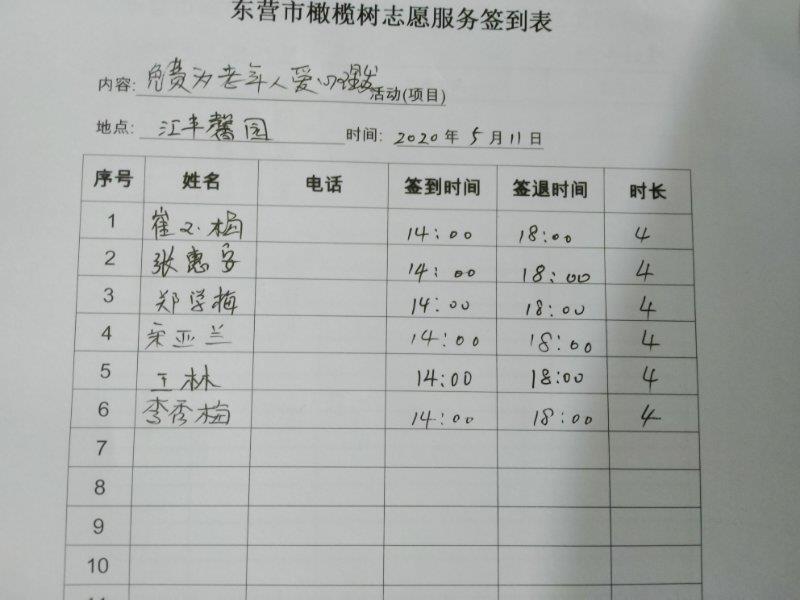 东营市橄榄树志愿服务签到表
内容: 免费为老年人爱心理发 活动(项目)
地点: 江丰馨园 时间: 2020 年 5 月 11 日
序号 姓名 电话 签到时间 签退时间 时长
1 崔 梅 14:00 18:00 4
2 张惠 14:00 18:00 4
3 郑学梅 14:00 18:00 4
4 宋亚兰 14:00 18:00 4
5 王林 14:00 18:00 4
6 李秀梅 14:00 18:00 4
7
8
9
10